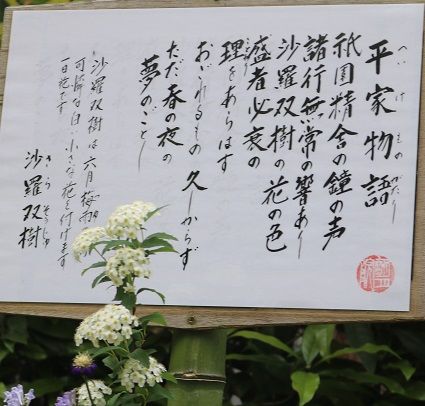 平家物語
へいけ ものがたり
祇園精舎の鐘の声
諸行無常の響あり
沙羅双樹の花の色
盛者必衰の
理をあらはす
おごれるもの久しからず
ただ春の夜の
夢のことし
沙羅双樹は六月梅雨期
可憐な白い小さな花を付けます
一日花です
沙羅双樹
さらそうじゅ